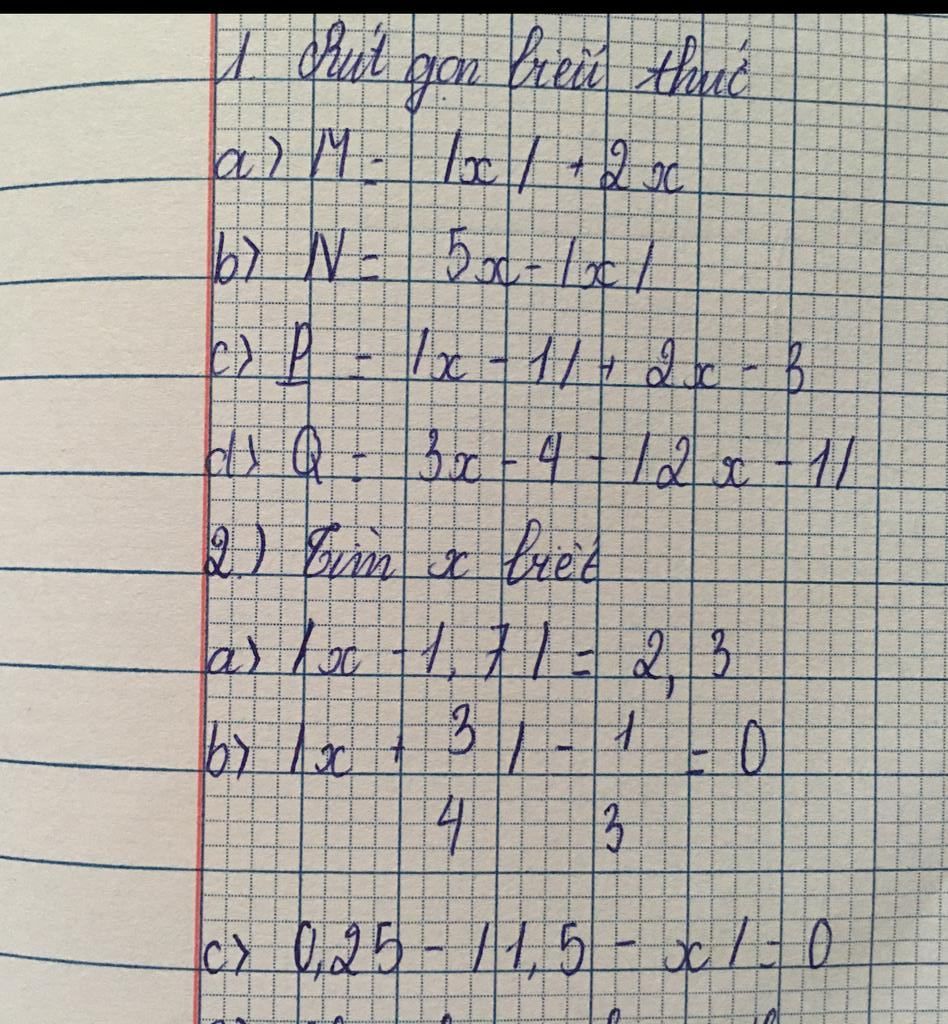 1. Rút gọn biểu thức
a) M = |x| + 2x
b) N = 5x - |x|
c) P = |x - 1| + 2x - 3
d) Q = 3x - 4 - |2x - 1|
2.) Tìm x biết
a) |x - 1,7| = 2,3
b) |x + 3/4| - 1/3 = 0
c) 0,25 - |1,5 - x| = 0